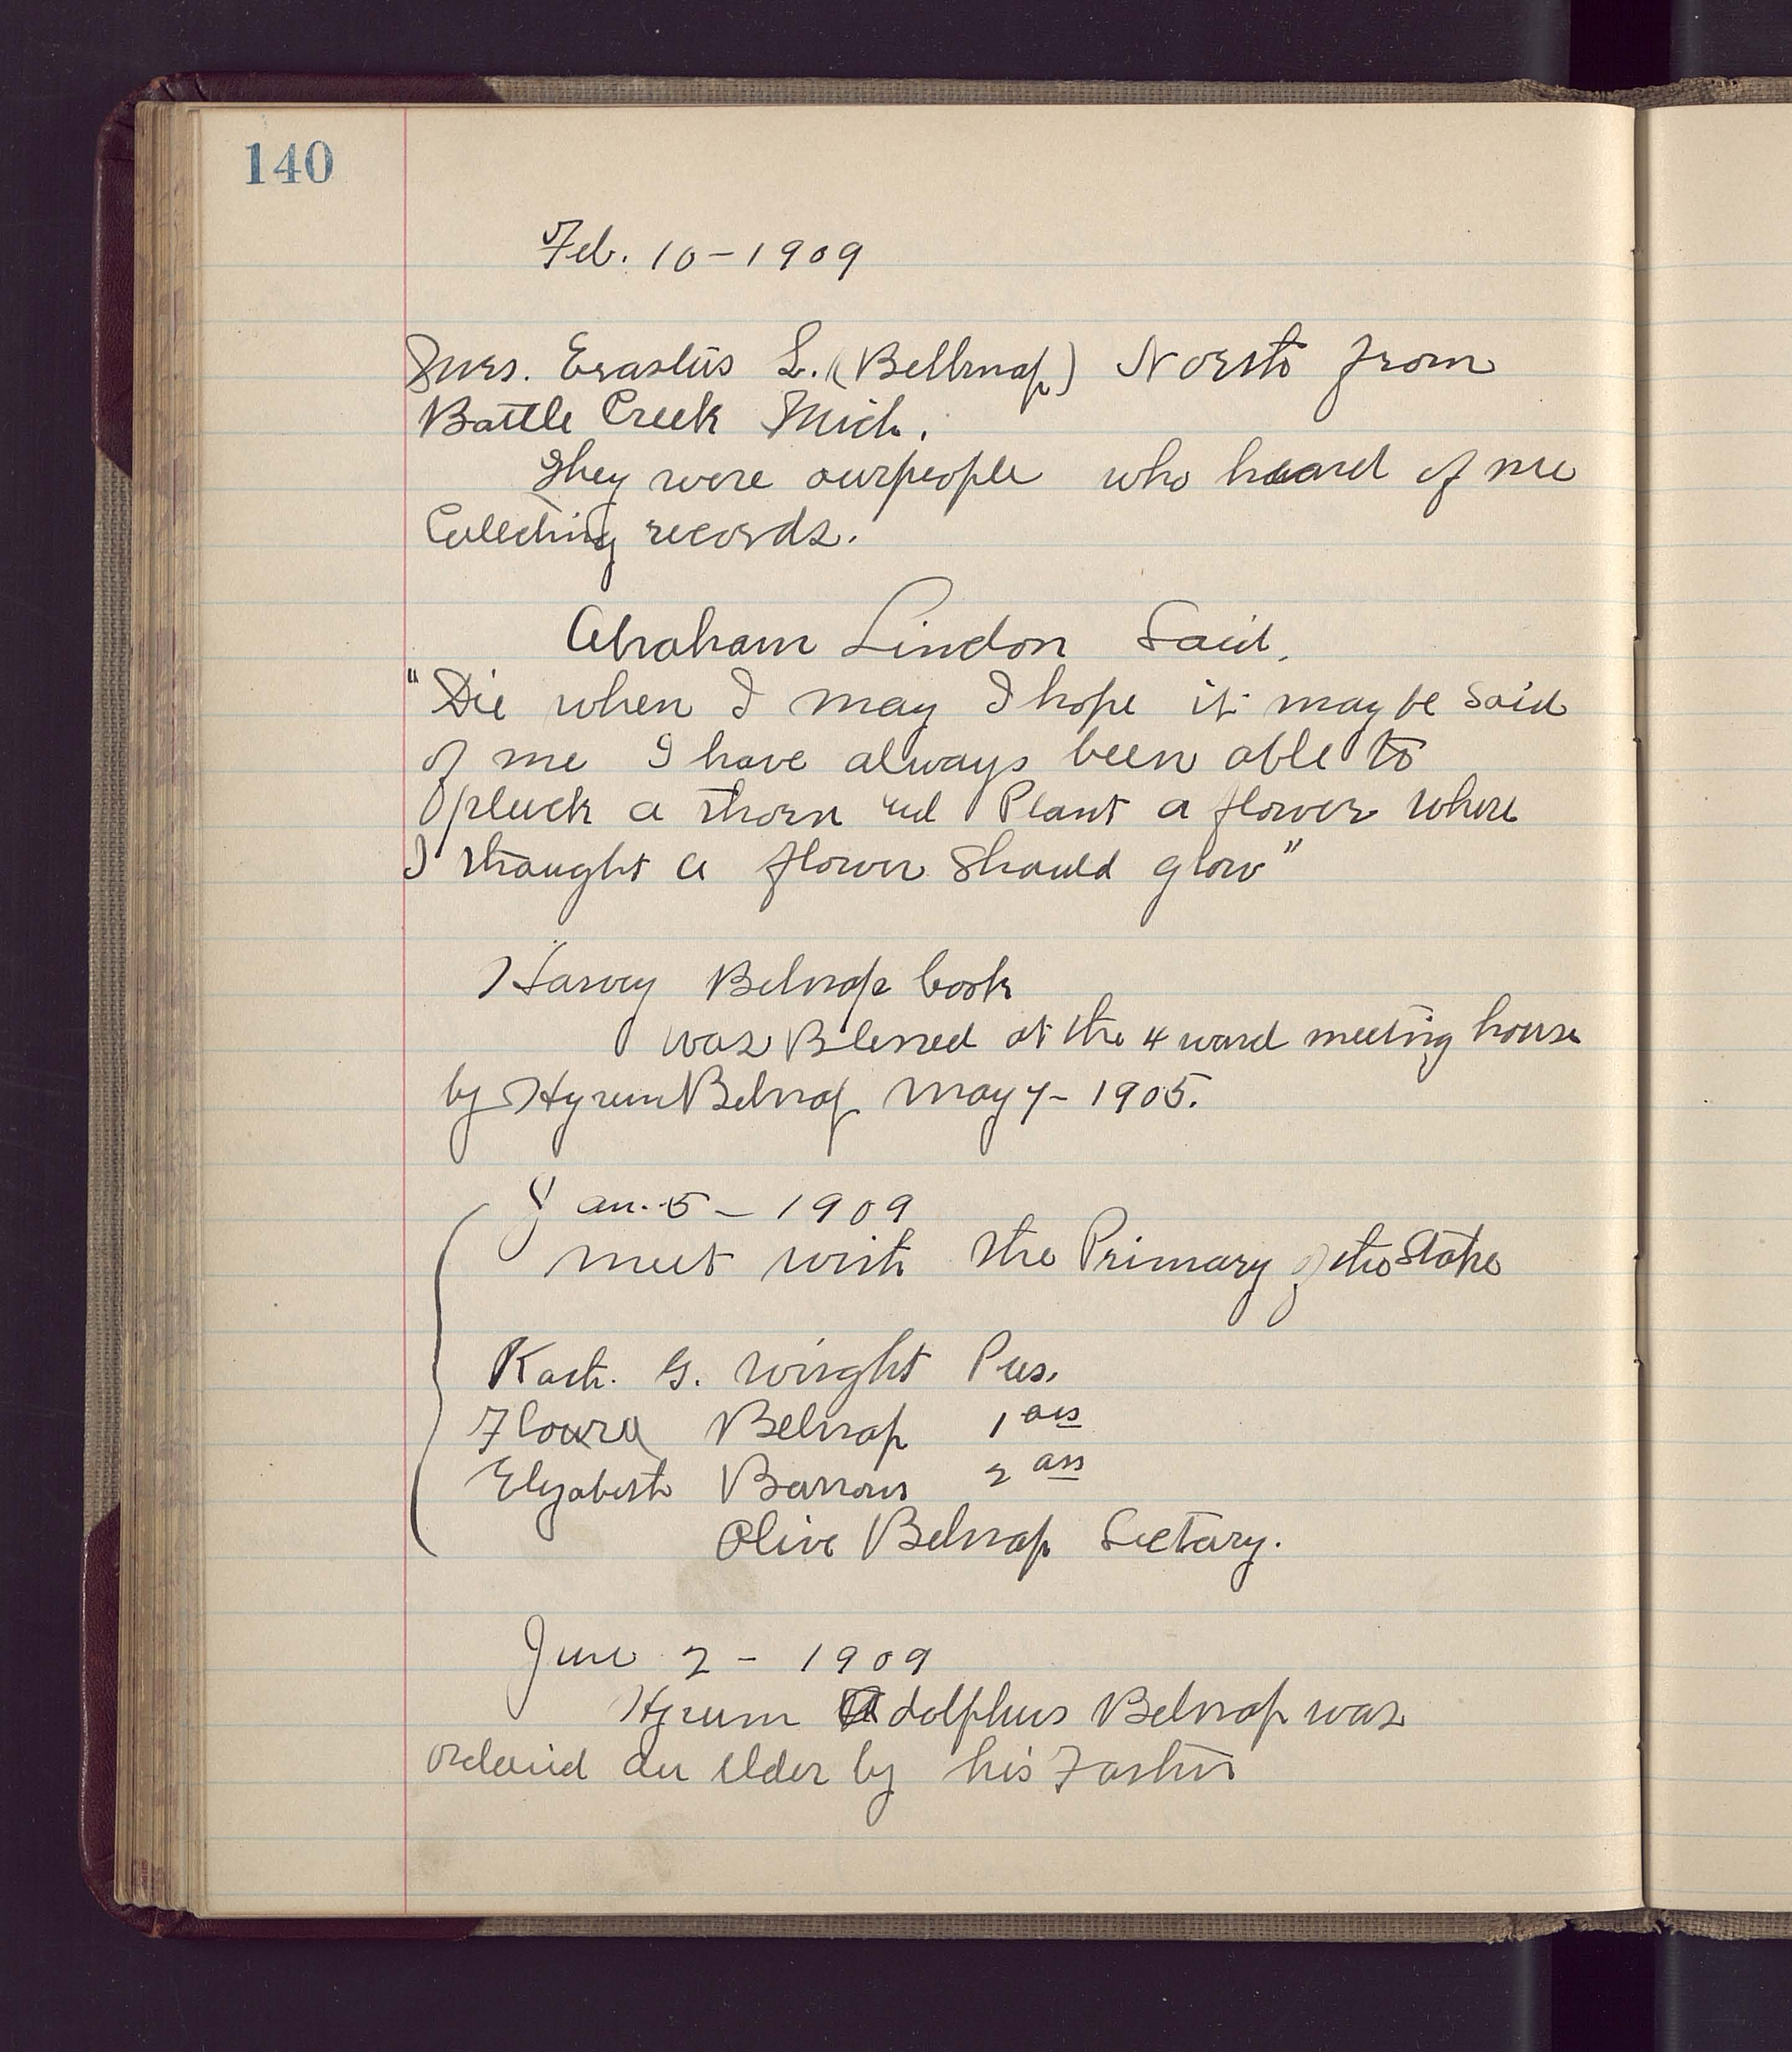 140
Feb. 10-1909
Mrs. Erastus L. (Bellnap) North from
Battle Creek Mich.
They were our people who heard of me
Collecting records.
Abraham Lincon Said.
"Die when I may I hope it may be said
of me I have always been able to
pluck a thorn Plant a flower where
I thought a flower should grow"
Harvey Belnap book
was Blessed at the 4 ward meeting house
by Hyrum Belnap May 7-1905.
Jan. 5-1909
meet with the Primary of the Stake
Kath. G. Wright Pres.
Floura Belnap 1 ass
Elizabeth Barrows 2 ass
Olive Belnap Sectary.
June 2-1909
Hyrum Adolphus Belnap was
ordaind an elder by his Father